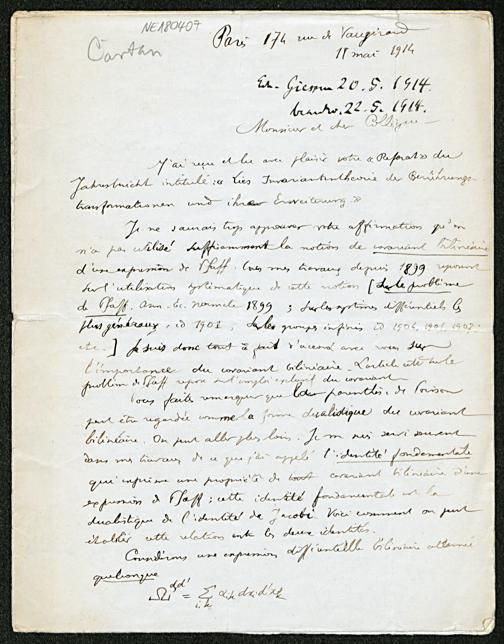 NE180407
Cartan
Paris 174 rue de Vaugirard
15 mai 1914
Giessen 20. 5. 1914.
22. 5. 1914.
Monsieur et cher Collègue
J'ai reçu et lu avec plaisir votre « Referat » du
Jahresbericht intitulé : « Lies Invariantentheorie der Berührungs-
transformationen und ihrer Erweiterung. »
Je ne saurais trop approuver votre affirmation qu'on
n'a pas utilisé suffisamment la notion de covariant bilinéaire
d'une expression de Pfaff. Tous mes travaux depuis 1899 reposent
sur l'utilisation systématique de cette notion [ Sur le problème
de Pfaff. Ann. Ec. normale 1899 ; Sur les systèmes différentiels les
plus généraux, id 1901 ; Sur les groupes infinis id 1904, 1905, 1908
etc. ] Je suis donc tout à fait d'accord avec vous sur
l'importance du covariant bilinéaire. L'article cité sur le
problème de Pfaff repose sur l'emploi du covariant
Vous faites remarquer que les parenthèses de Poisson
peut être regardée comme la forme dualistique du covariant
bilinéaire. On peut aller plus loin. Je me suis servi souvent
dans mes travaux de ce que j'ai appelé l'identité fondamentale
qui exprime une propriété de tout covariant bilinéaire d'une
expression de Pfaff ; cette identité fondamentale est la
dualistique de l'identité de Jacobi. Voici comment on peut
établir cette relation entre les deux identités.
Considérons une expression différentielle bilinéaire alternée
quelconque
Ω^{dd'} = Σ_{i,k} a_{ik} dx_i d'x_k